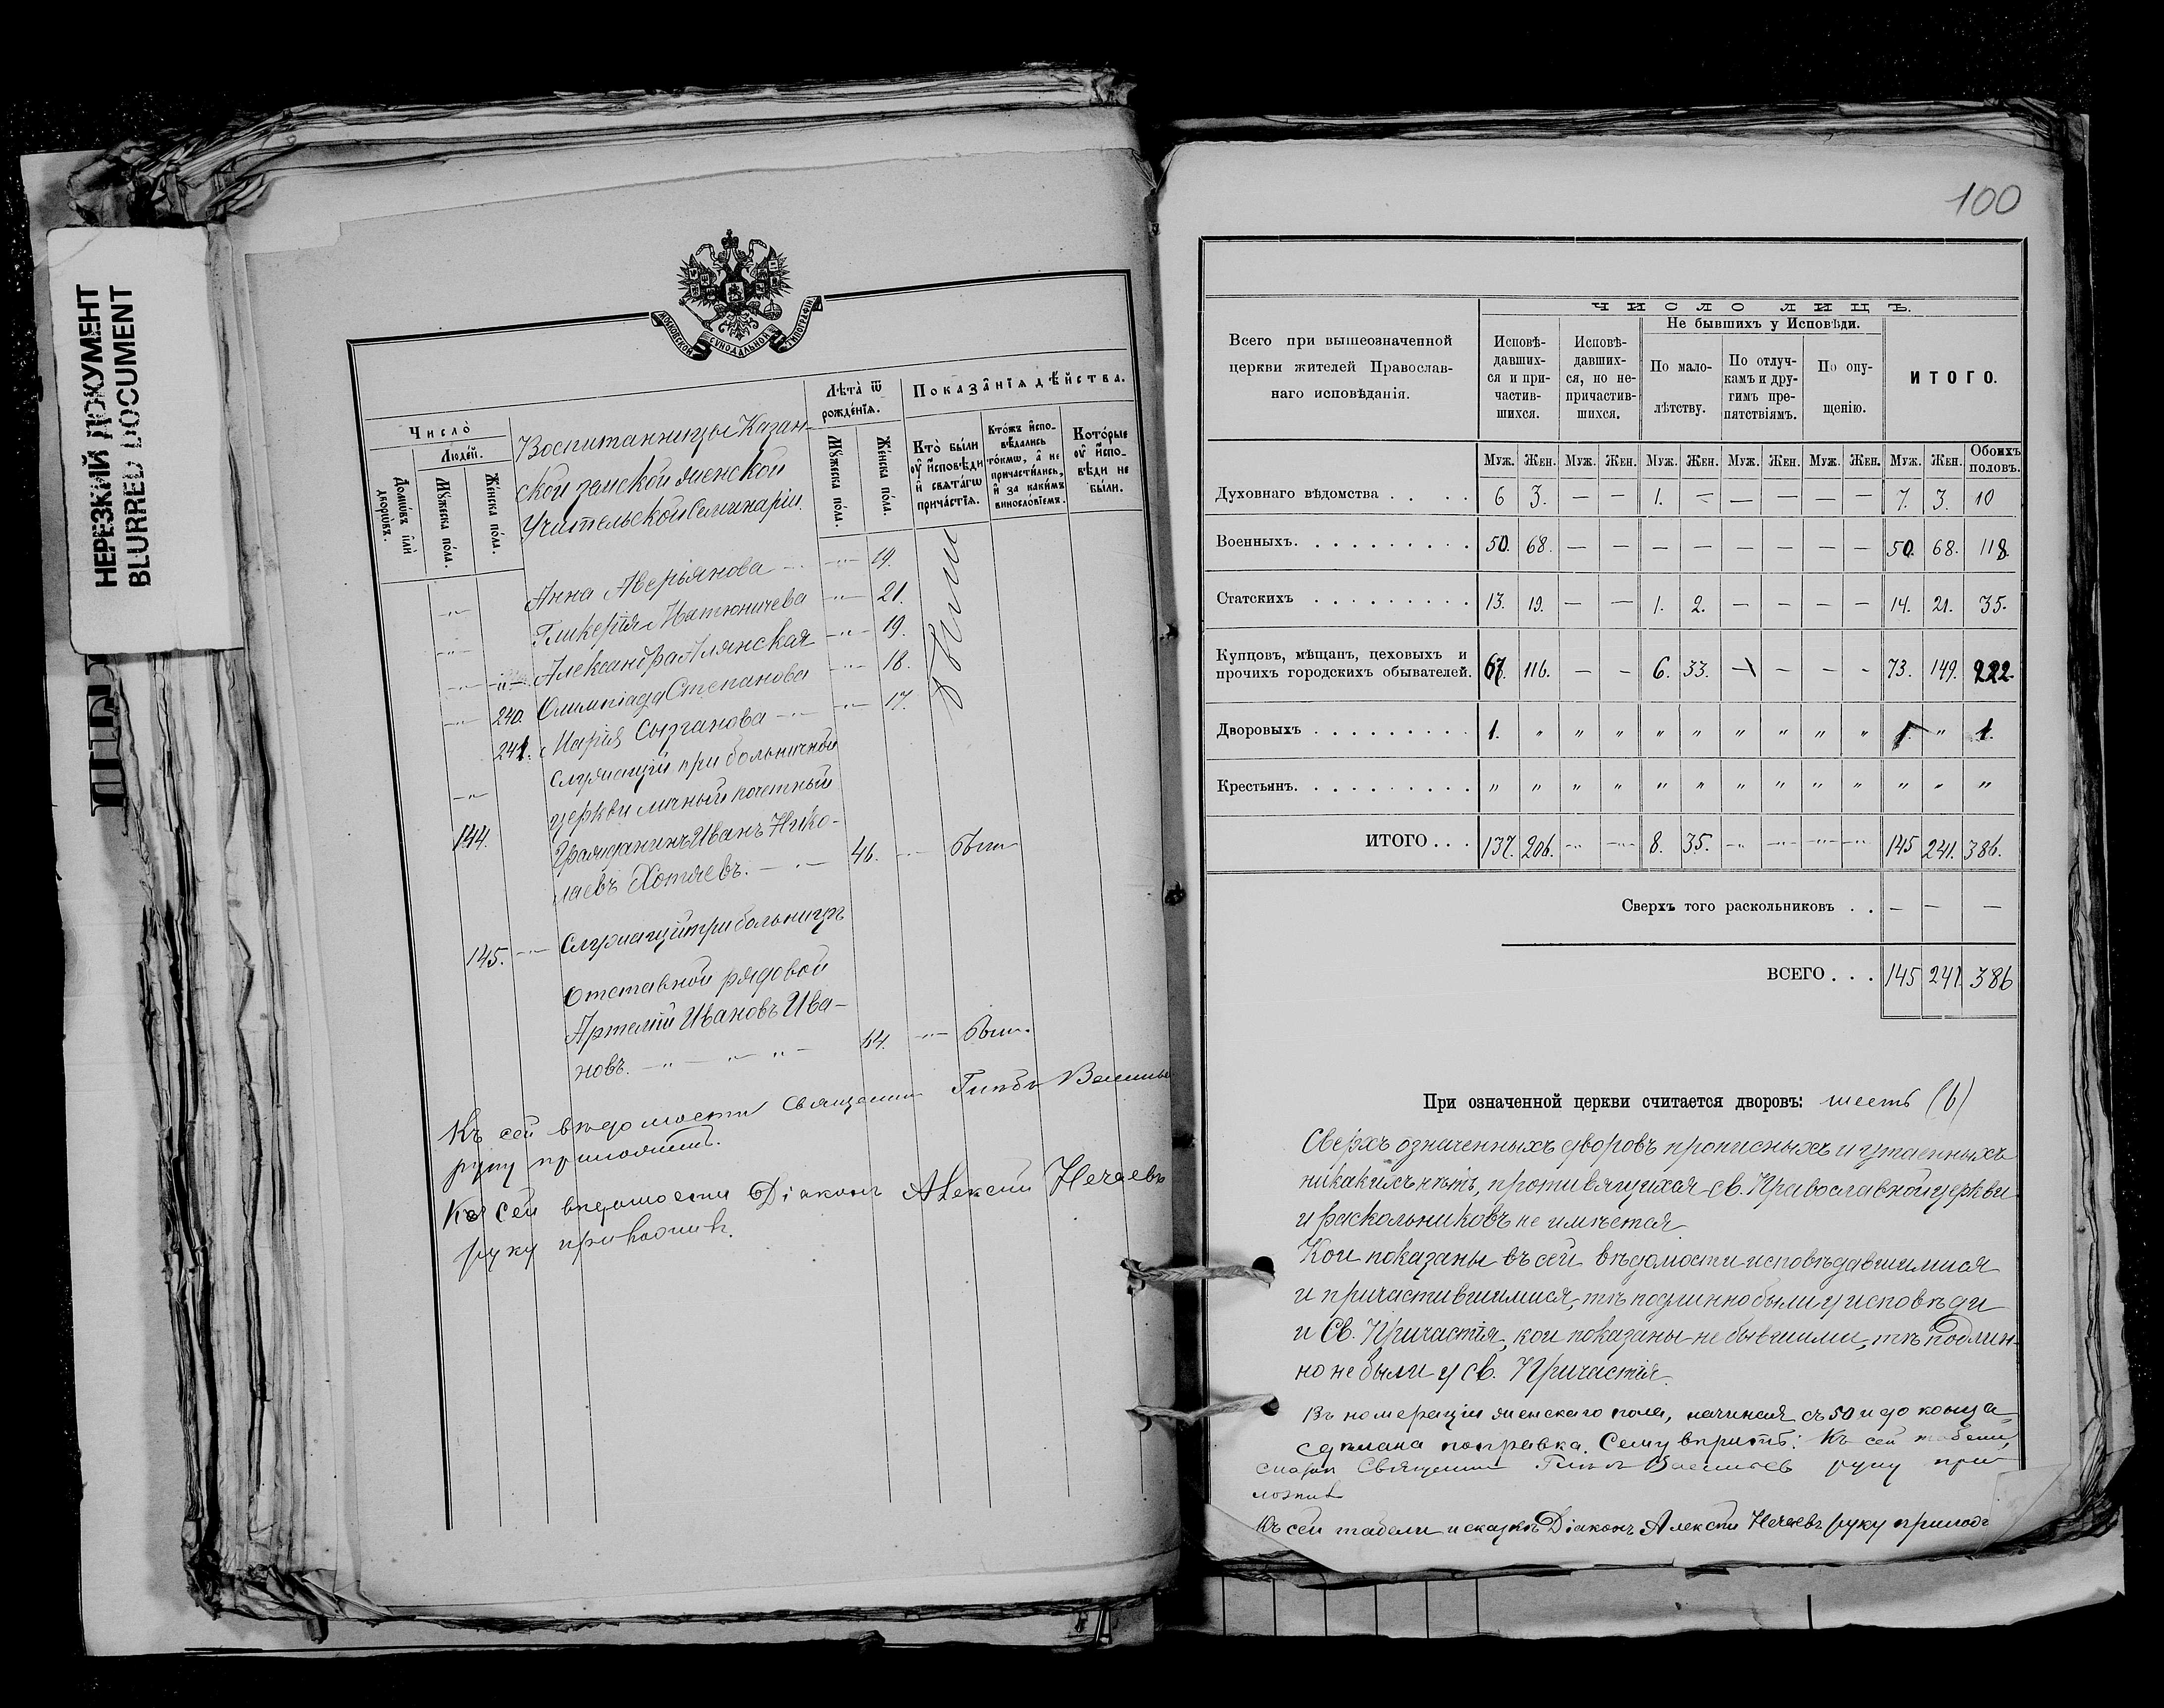 НЕРЕЗКИЙ ДОКУМЕНТ
BLURRED DOCUMENT
МОСКОВСКОЙ СУНОДАЛЬНОЙ ТИПОГРАФІИ
Число̀
Людей.
Домѡвъ и҆лѝ дворѡвъ.
Мꙋжеска по́ла.
Же́нска по́ла.
Лѣта̀ ѿ рождéнїѧ.
Мꙋжеска по́ла.
Же́нска по́ла.
Показа̑нїѧ дѣ́йства.
Кто̀ бы́ли ᲂу҆ и҆сповѣди и҆ свѧта́гѡ прича́стїѧ.
Кто́жъ и҆спо-вѣ́дались то́кмѡ, а҆ не причасти́лись, и҆ за каки́мъ винослóвїемъ.
Кото́рые ᲂу҆ и҆спо-вѣди не бы́ли.
Воспитанницы Казан-
ской земской женской
Учительской Семинаріи.
Анна Аверьянова — 19.
Гликерія Матюничева — 21.
Александра Алянская — 19.
240. Олимпіада Степанова — 18.
241. Марія Сызганова — 17.
были
Служащій при больничной
церкви личный почетный
144. Гражданинъ Иванъ Нико-
лаевъ Хотяевъ. — 46. — былъ
145. — Служащій при больницѣ
Отставной рядовой
Артемій Ивановъ Ива-
новъ. — 64. — былъ.
Къ сей вѣдомости Священникъ Глѣбъ Васильевъ
руку приложилъ.
Къ сей вѣдомости Діаконъ Алексій Нечаевъ
руку приложилъ.
100
ЧИСЛО ЛИЦЪ.
Всего при вышеозначенной
церкви жителей Православ-
наго исповѣданія.
Исповѣ-давших-ся и при-частив-шихся.
Исповѣ-давших-ся, но не-причастив-шихся.
Не бывшихъ у Исповѣди.
По мало-лѣтству.
По отлуч-камъ и дру-гимъ пре-пятствіямъ.
По опу-щенію.
ИТОГО.
Муж. Жен. Муж. Жен. Муж. Жен. Муж. Жен. Муж. Жен. Муж. Жен. Обоихъ половъ.
Духовнаго вѣдомства . . . . 6 3. — — 1. — — — — — 7. 3. 10
Военныхъ. . . . . . . . . . 50. 68. — — — — — — — — 50. 68. 118.
Статскихъ . . . . . . . . . 13. 19. — — 1. 2. — — — — 14. 21. 35.
Купцовъ, мѣщанъ, цеховыхъ и
прочихъ городскихъ обывателей. 67. 116. — — 6. 33. — — — — 73. 149. 222.
Дворовыхъ . . . . . . . . . 1. " " " " " " " " " 1. " 1.
Крестьянъ. . . . . . . . . . " " " " " " " " " " " " "
ИТОГО . . . 137. 206. — — 8. 35. — — — — 145 241. 386.
Сверхъ того раскольниковъ . . — — —
ВСЕГО . . . 145 241. 386
При означенной церкви считается дворовъ: шесть (6)
Сверхъ означенныхъ дворовъ прописныхъ и утаенныхъ
никакихъ нѣтъ, противящихся св. Православной церкви
и раскольниковъ не имѣется.
Кои показаны въ сей вѣдомости исповѣдавшимися
и причастившимися, тѣ подлинно были у исповѣди
и Св. Причастія, кои показаны не бывшими, тѣ подлин-
но не были у св. Причастія.
Въ номераціи женскаго пола, начиная съ 50 и до конца
сдѣлана поправка. Сему вѣрить. Къ сей табели,
Священникъ Глѣбъ Васильевъ руку при
ложилъ
Къ сей табели и сказкѣ Діаконъ Алексій Нечаевъ руку прилож